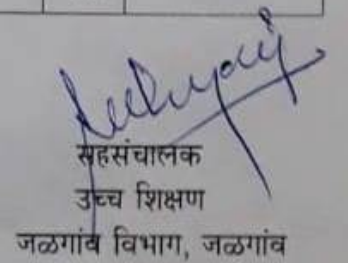 सहसंचालक
उच्च शिक्षण
जळगांव विभाग, जळगांव